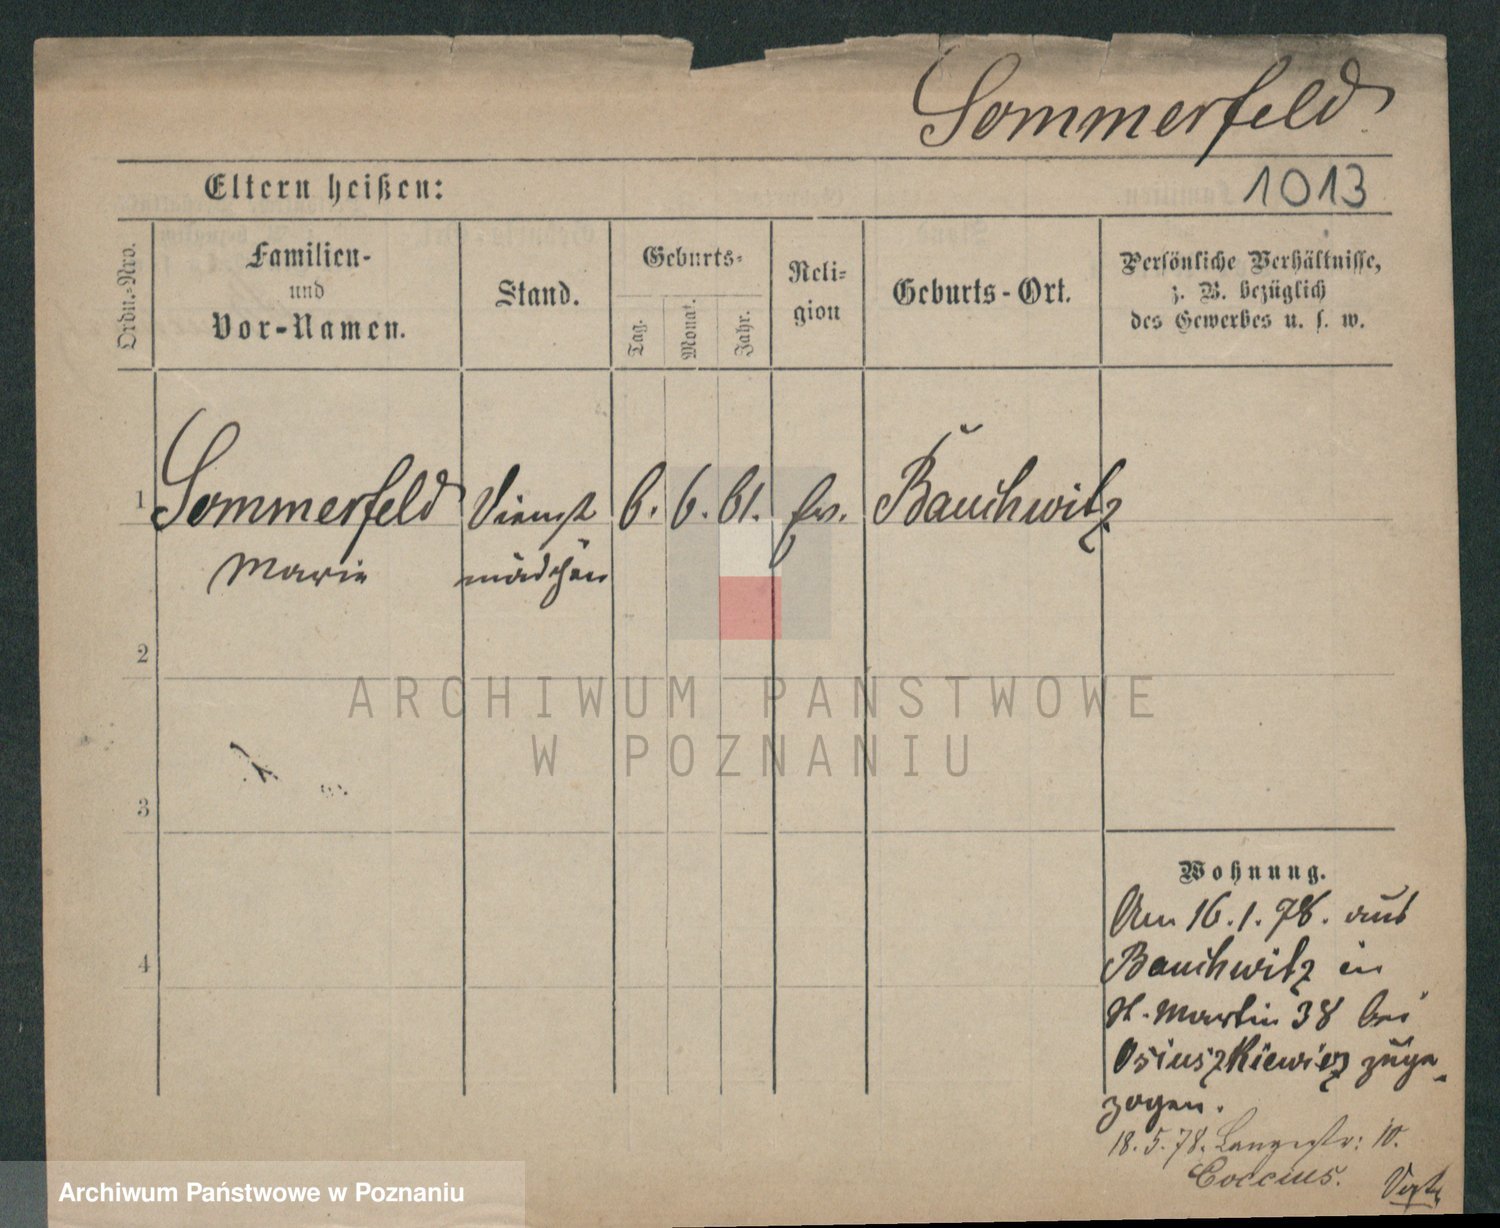 Sommerfeld
Eltern heißen:
1013
Ordn.-Nro.
Familien-
und
Vor-Namen.
Stand.
Geburts-
Tag.
Monat.
Jahr.
Reli-
gion
Geburts-Ort.
Persönliche Verhältnisse,
z. B. bezüglich
des Gewerbes u. s. w.
1 Sommerfeld Dienst 6. 6. 61. ev. Bauchwitz
Marie mädchen
2
ARCHIWUM PAŃSTWOWE
W POZNANIU
3
4
Wohnung.
Am 16.1.78. aus
Bauchwitz in
St. Martin 38 bei
Osiuszkiewicz zuge-
zogen.
18.5.78. Langestr: 10.
Coccius.
Archiwum Państwowe w Poznaniu